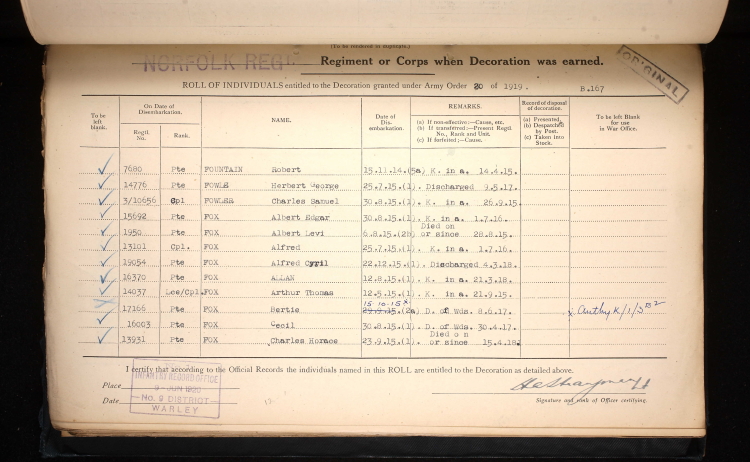 (To be rendered in duplicate.)
NORFOLK REGT Regiment or Corps when Decoration was earned.
ORIGINAL
ROLL OF INDIVIDUALS entitled to the Decoration granted under Army Order 20 of 1919. B.167
To be left blank. On Date of Disembarkation. Regtl. No. Rank. NAME. Date of Disembarkation. REMARKS. (a) If non-effective:—Cause, etc. (b) If transferred:—Present Regtl. No., Rank and Unit. (c) If forfeited:—Cause. Record of disposal of decoration. (a) Presented. (b) Despatched by Post. (c) Taken into Stock. To be left Blank for use in War Office.
7680 Pte FOUNTAIN Robert 15.11.14.(5a) K. in a. 14.4.15.
14776 Pte FOWLE Herbert George 25.7.15.(1). Discharged 9.5.17.
3/10656 Cpl FOWLER Charles Samuel 30.8.15.(1). K. in a. 26.9.15.
15692 Pte FOX Albert Edgar 30.8.15.(1). K. in a. 1.7.16.
1950 Pte FOX Albert Levi 6.8.15.(2b) Died on or since 28.8.15.
13101 Cpl. FOX Alfred 25.7.15.(1). K. in a. 1.7.16.
19054 Pte FOX Alfred Cyril 22.12.15.(1). Discharged 4.3.18.
16370 Pte FOX ALLAN 12.8.15.(1). K. in a. 21.3.18.
14037 Lce/Cpl. FOX Arthur Thomas 12.5.15.(1). K. in a. 21.9.15.
15.10.15 x
17166 Pte FOX Bertie (2a) D. of Wds. 8.6.17. x Authy K/1/
16003 Pte FOX Cecil 30.8.15.(1). D. of Wds. 30.4.17.
13931 Pte FOX Charles Horace 23.9.15.(1). Died on or since 15.4.18.
I certify that according to the Official Records the individuals named in this ROLL are entitled to the Decoration as detailed above.
Place
Date
INFANTRY RECORD OFFICE
9 JUN 1920
No. 9 DISTRICT
WARLEY
Signature and rank of Officer certifying.